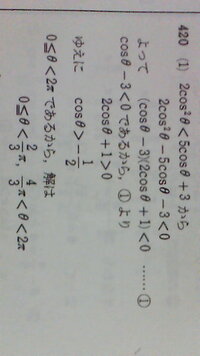 420 (1) 2cos²θ<5cosθ+3 から
2cos²θ−5cosθ−3<0
よって (cosθ−3)(2cosθ+1)<0 ……①
cosθ−3<0であるから，①より
2cosθ+1>0
ゆえに cosθ>−1/2
0≦θ<2πであるから，解は
0≦θ<2/3π，4/3π<θ<2π